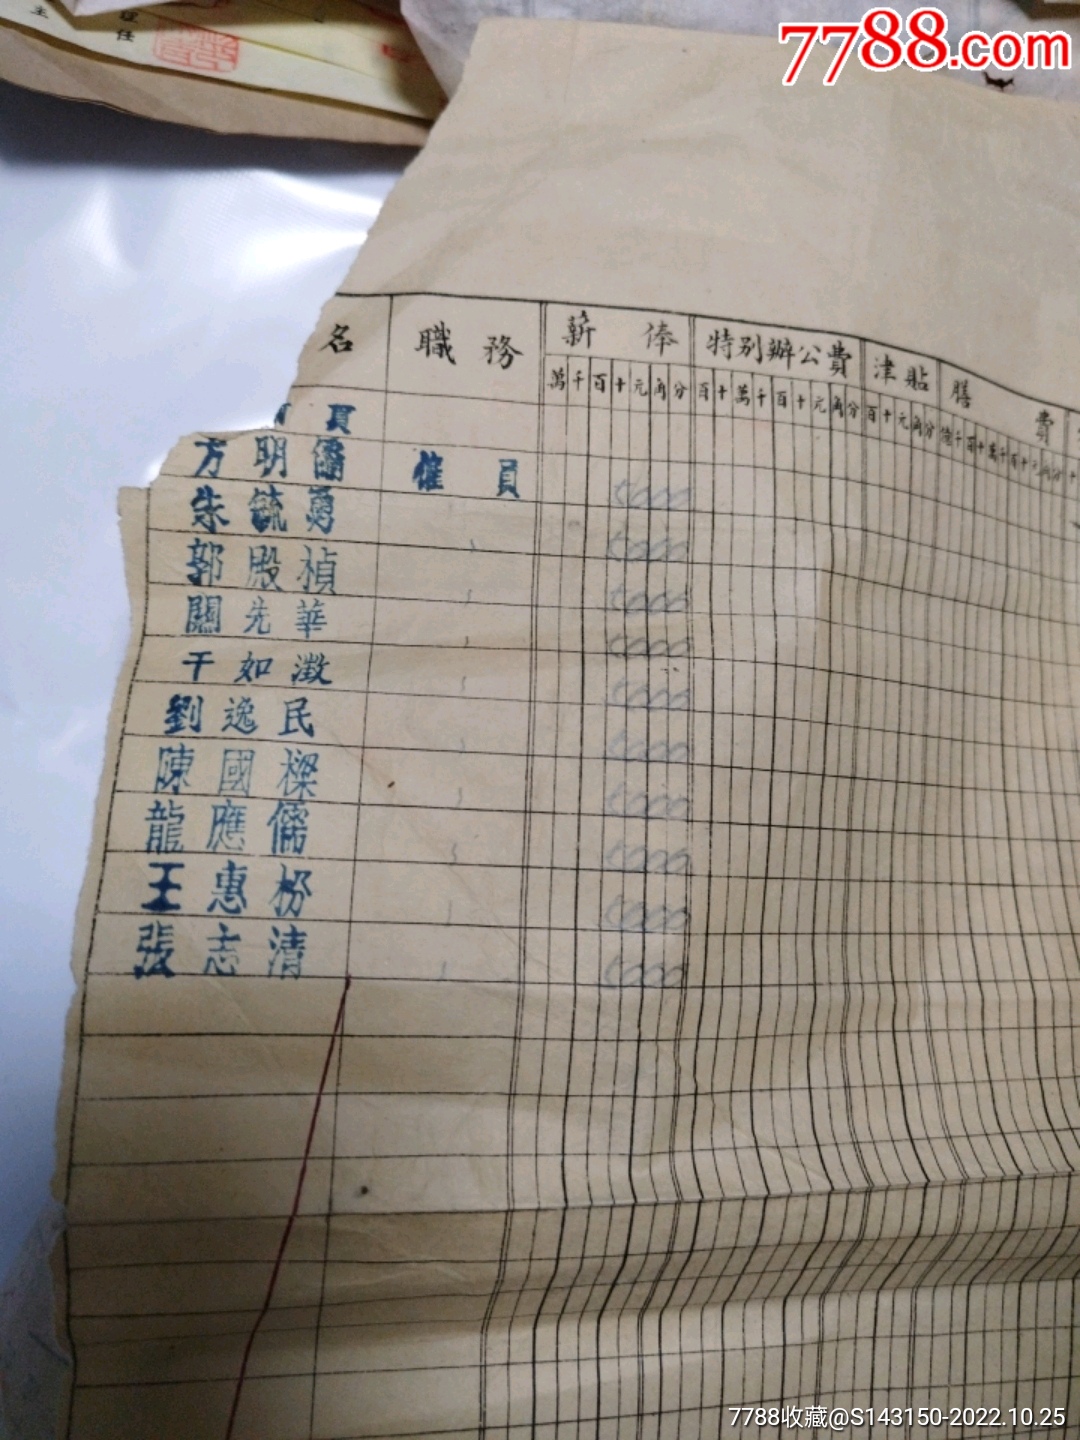 7788.com
主 任
理
名 職務 薪俸 特別辦公費 津貼 膳費
萬千百十元角分 百十萬千百十元角分 百十元角分
員
方明儒 僱員 5000
朱毓勇 5000
郭殿楨 5000
關先華 5000
干如澂 5000
劉逸民 5000
陳國樑 5000
龍應儒 5000
王惠枌 5000
張志清 5000
7788收藏@S143150-2022.10.25